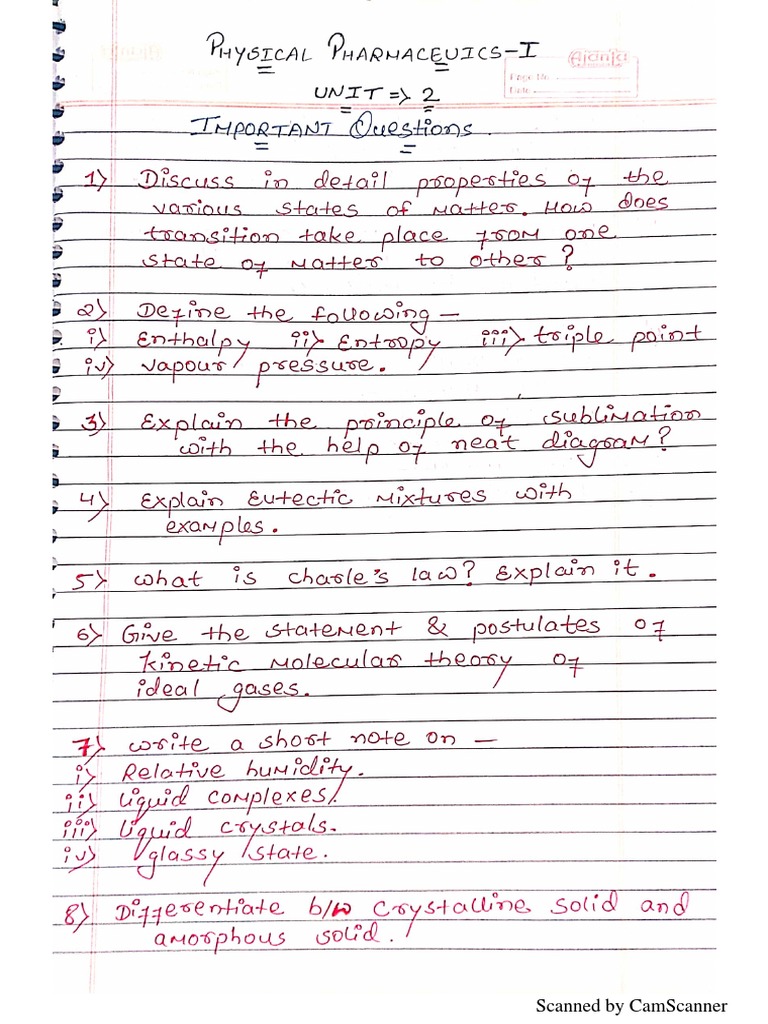 PHYSICAL PHARMACEUICS-I
Ajanta
Page No.
Date
UNIT => 2
IMPORTANT Questions.
1) Discuss in detail properties of the
various states of matter. How does
transition take place from one
state of matter to other?
2) Define the following —
i) Enthalpy ii) Entropy iii) triple point
iv) vapour pressure.
3) Explain the principle of sublimation
with the help of neat diagram?
4) Explain Eutectic mixtures with
examples.
5) what is charle's law? Explain it.
6) Give the statement & postulates of
kinetic molecular theory of
ideal gases.
7) write a short note on —
i) Relative humidity.
ii) liquid complexes.
iii) liquid crystals.
iv) glassy state.
8) Differentiate b/w crystalline solid and
amorphous solid.
Scanned by CamScanner